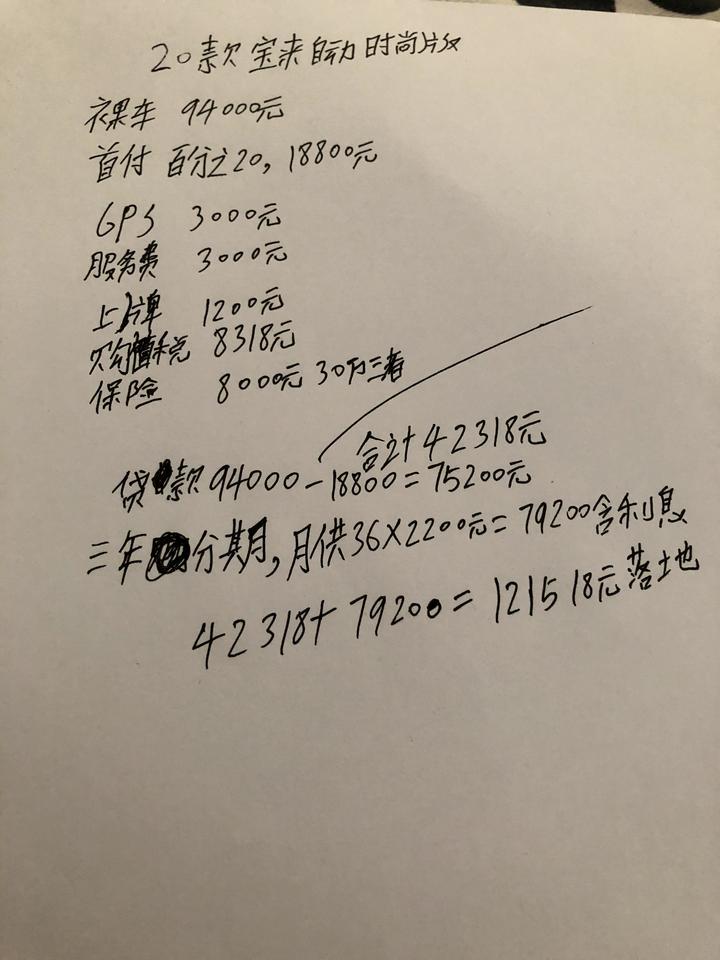 20款宝来自动时尚版
裸车 94000元
首付 百分之20, 18800元
GPS 3000元
服务费 3000元
上牌 1200元
购置税 8318元
保险 8000元 30万三者
合计42318元
贷款94000-18800=75200元
三年分期,月供36×2200元=79200含利息
42318+79200=121518元落地